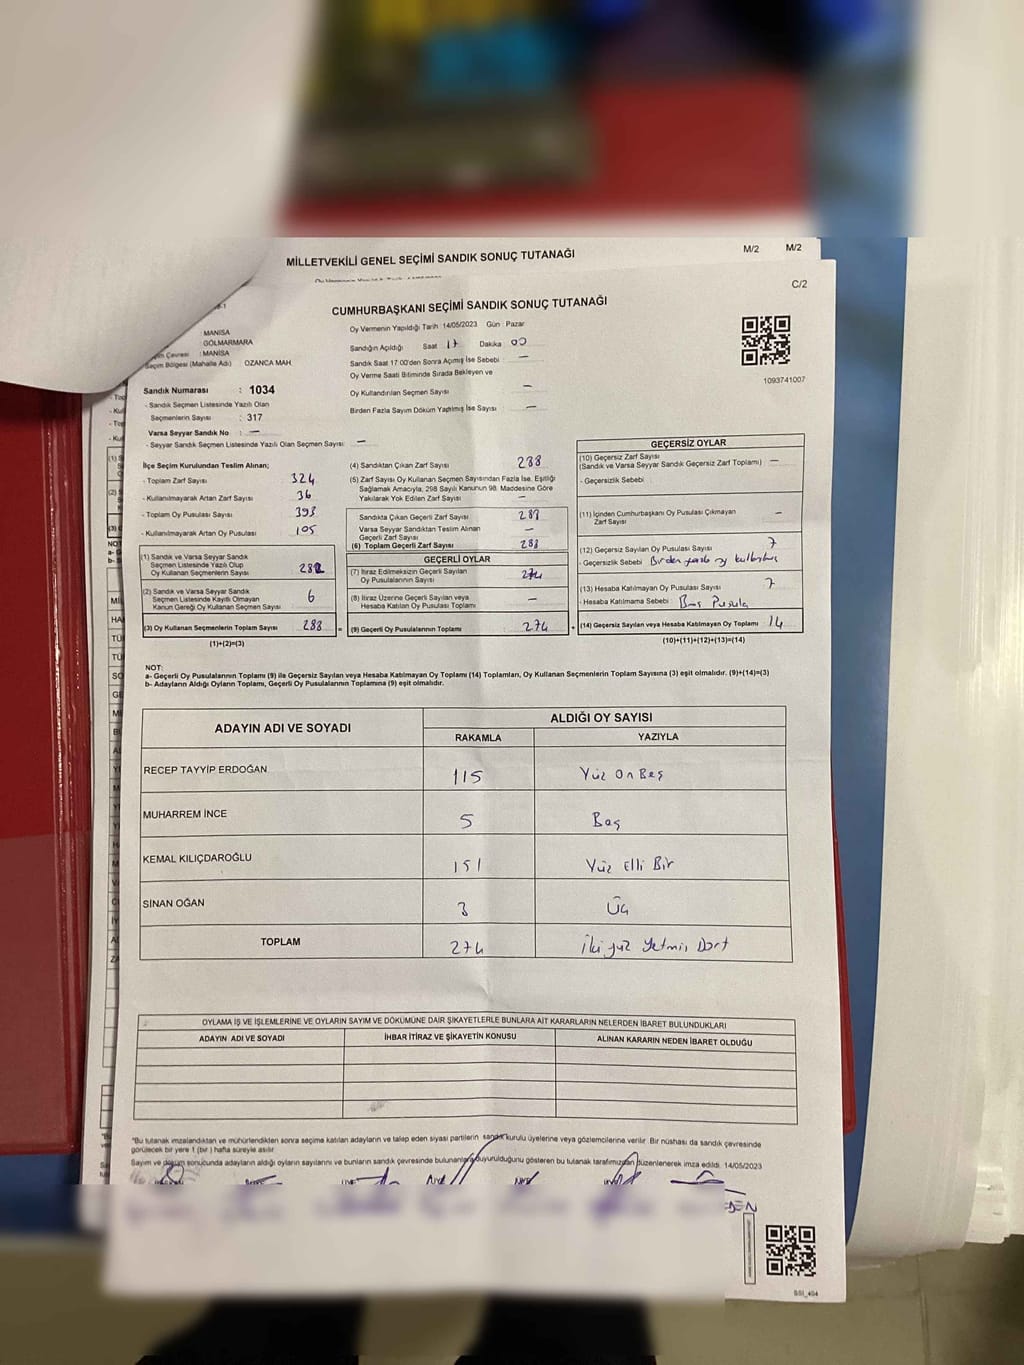 MİLLETVEKİLİ GENEL SEÇİMİ SANDIK SONUÇ TUTANAĞI
M/2 M/2
C/2
CUMHURBAŞKANI SEÇİMİ SANDIK SONUÇ TUTANAĞI
MANİSA
GÖLMARMARA
: MANİSA
Seçim Bölgesi (Mahalle Adı) OZANCA MAH.
Sandık Numarası : 1034
- Sandık Seçmen Listesinde Yazılı Olan
Seçmenlerin Sayısı : 317
Varsa Seyyar Sandık No : —
- Seyyar Sandık Seçmen Listesinde Yazılı Olan Seçmen Sayısı: —
Oy Vermenin Yapıldığı Tarih :14/05/2023 Gün : Pazar
Sandığın Açıldığı Saat 17 Dakika 00
Sandık Saat 17:00'den Sonra Açımış İse Sebebi : —
Oy Verme Saati Bitiminde Sırada Bekleyen ve
Oy Kullandırılan Seçmen Sayısı : —
Birden Fazla Sayım Döküm Yapılmış İse Sayısı : —
1093741007
İlçe Seçim Kurulundan Teslim Alınan;
- Toplam Zarf Sayısı 324
- Kullanılmayarak Artan Zarf Sayısı 36
- Toplam Oy Pusulası Sayısı 393
- Kullanılmayarak Artan Oy Pusulası 105
(1) Sandık ve Varsa Seyyar Sandık
Seçmen Listesinde Yazılı Olup
Oy Kullanan Seçmenlerin Sayısı 282
(2) Sandık ve Varsa Seyyar Sandık
Seçmen Listesinde Kayıtlı Olmayan
Kanun Gereği Oy Kullanan Seçmen Sayısı 6
(3) Oy Kullanan Seçmenlerin Toplam Sayısı 288
(1)+(2)=(3)
(4) Sandıktan Çıkan Zarf Sayısı 288
(5) Zarf Sayısı Oy Kullanan Seçmen Sayısından Fazla İse, Eşitliği
Sağlamak Amacıyla, 298 Sayılı Kanunun 98. Maddesine Göre
Yakılarak Yok Edilen Zarf Sayısı —
Sandıkta Çıkan Geçerli Zarf Sayısı 288
Varsa Seyyar Sandıktan Teslim Alınan
Geçerli Zarf Sayısı —
(6) Toplam Geçerli Zarf Sayısı 288
GEÇERLİ OYLAR
(7) İtiraz Edilmeksizin Geçerli Sayılan
Oy Pusulasının Sayısı 274
(8) İtiraz Üzerine Geçerli Sayılan veya
Hesaba Katılan Oy Pusulası Toplamı —
= (9) Geçerli Oy Pusulalarının Toplamı 274
GEÇERSİZ OYLAR
(10) Geçersiz Zarf Sayısı
(Sandık ve Varsa Seyyar Sandık Geçersiz Zarf Toplamı) —
- Geçersizlik Sebebi
(11) İçinden Cumhurbaşkanı Oy Pusulası Çıkmayan
Zarf Sayısı —
(12) Geçersiz Sayılan Oy Pusulası Sayısı 7
- Geçersizlik Sebebi Birden fazla oy
(13) Hesaba Katılmayan Oy Pusulası Sayısı 7
- Hesaba Katılmama Sebebi : Boş Pusula
+ (14) Geçersiz Sayılan veya Hesaba Katılmayan Oy Toplamı 14
(10)+(11)+(12)+(13)=(14)
NOT:
a- Geçerli Oy Pusulalarının Toplamı (9) ile Geçersiz Sayılan veya Hesaba Katılmayan Oy Toplamı (14) Toplamları, Oy Kullanan Seçmenlerin Toplam Sayısına (3) eşit olmalıdır. (9)+(14)=(3)
b- Adayların Aldığı Oyların Toplamı, Geçerli Oy Pusulalarının Toplamına (9) eşit olmalıdır.
ADAYIN ADI VE SOYADI ALDIĞI OY SAYISI
RAKAMLA YAZIYLA
RECEP TAYYİP ERDOĞAN 115 Yüz On Beş
MUHARREM İNCE 5 Beş
KEMAL KILIÇDAROĞLU 151 Yüz Elli Bir
SİNAN OĞAN 3 Üç
TOPLAM 274 İki yüz Yetmiş Dört
OYLAMA İŞ VE İŞLEMLERİNE VE OYLARIN SAYIM VE DÖKÜMÜNE DAİR ŞİKAYETLERLE BUNLARA AİT KARARLARIN NELERDEN İBARET BULUNDUKLARI
ADAYIN ADI VE SOYADI İHBAR İTİRAZ VE ŞİKAYETİN KONUSU ALINAN KARARIN NEDEN İBARET OLDUĞU
*Bu tutanak imzalandıktan ve mühürlendikten sonra seçime katılan adayların ve talep eden siyasi partilerin sandık kurulu üyelerine veya gözlemcilerine verilir. Bir nüshası da sandık çevresinde
görülecek bir yere 1 (bir ) hafta süreyle asılır.
Sayım ve döküm sonucunda adayların aldığı oyların sayılarını ve bunların sandık çevresinde bulunanlara duyurulduğunu gösteren bu tutanak tarafımızdan düzenlenerek imza edildi. 14/05/2023